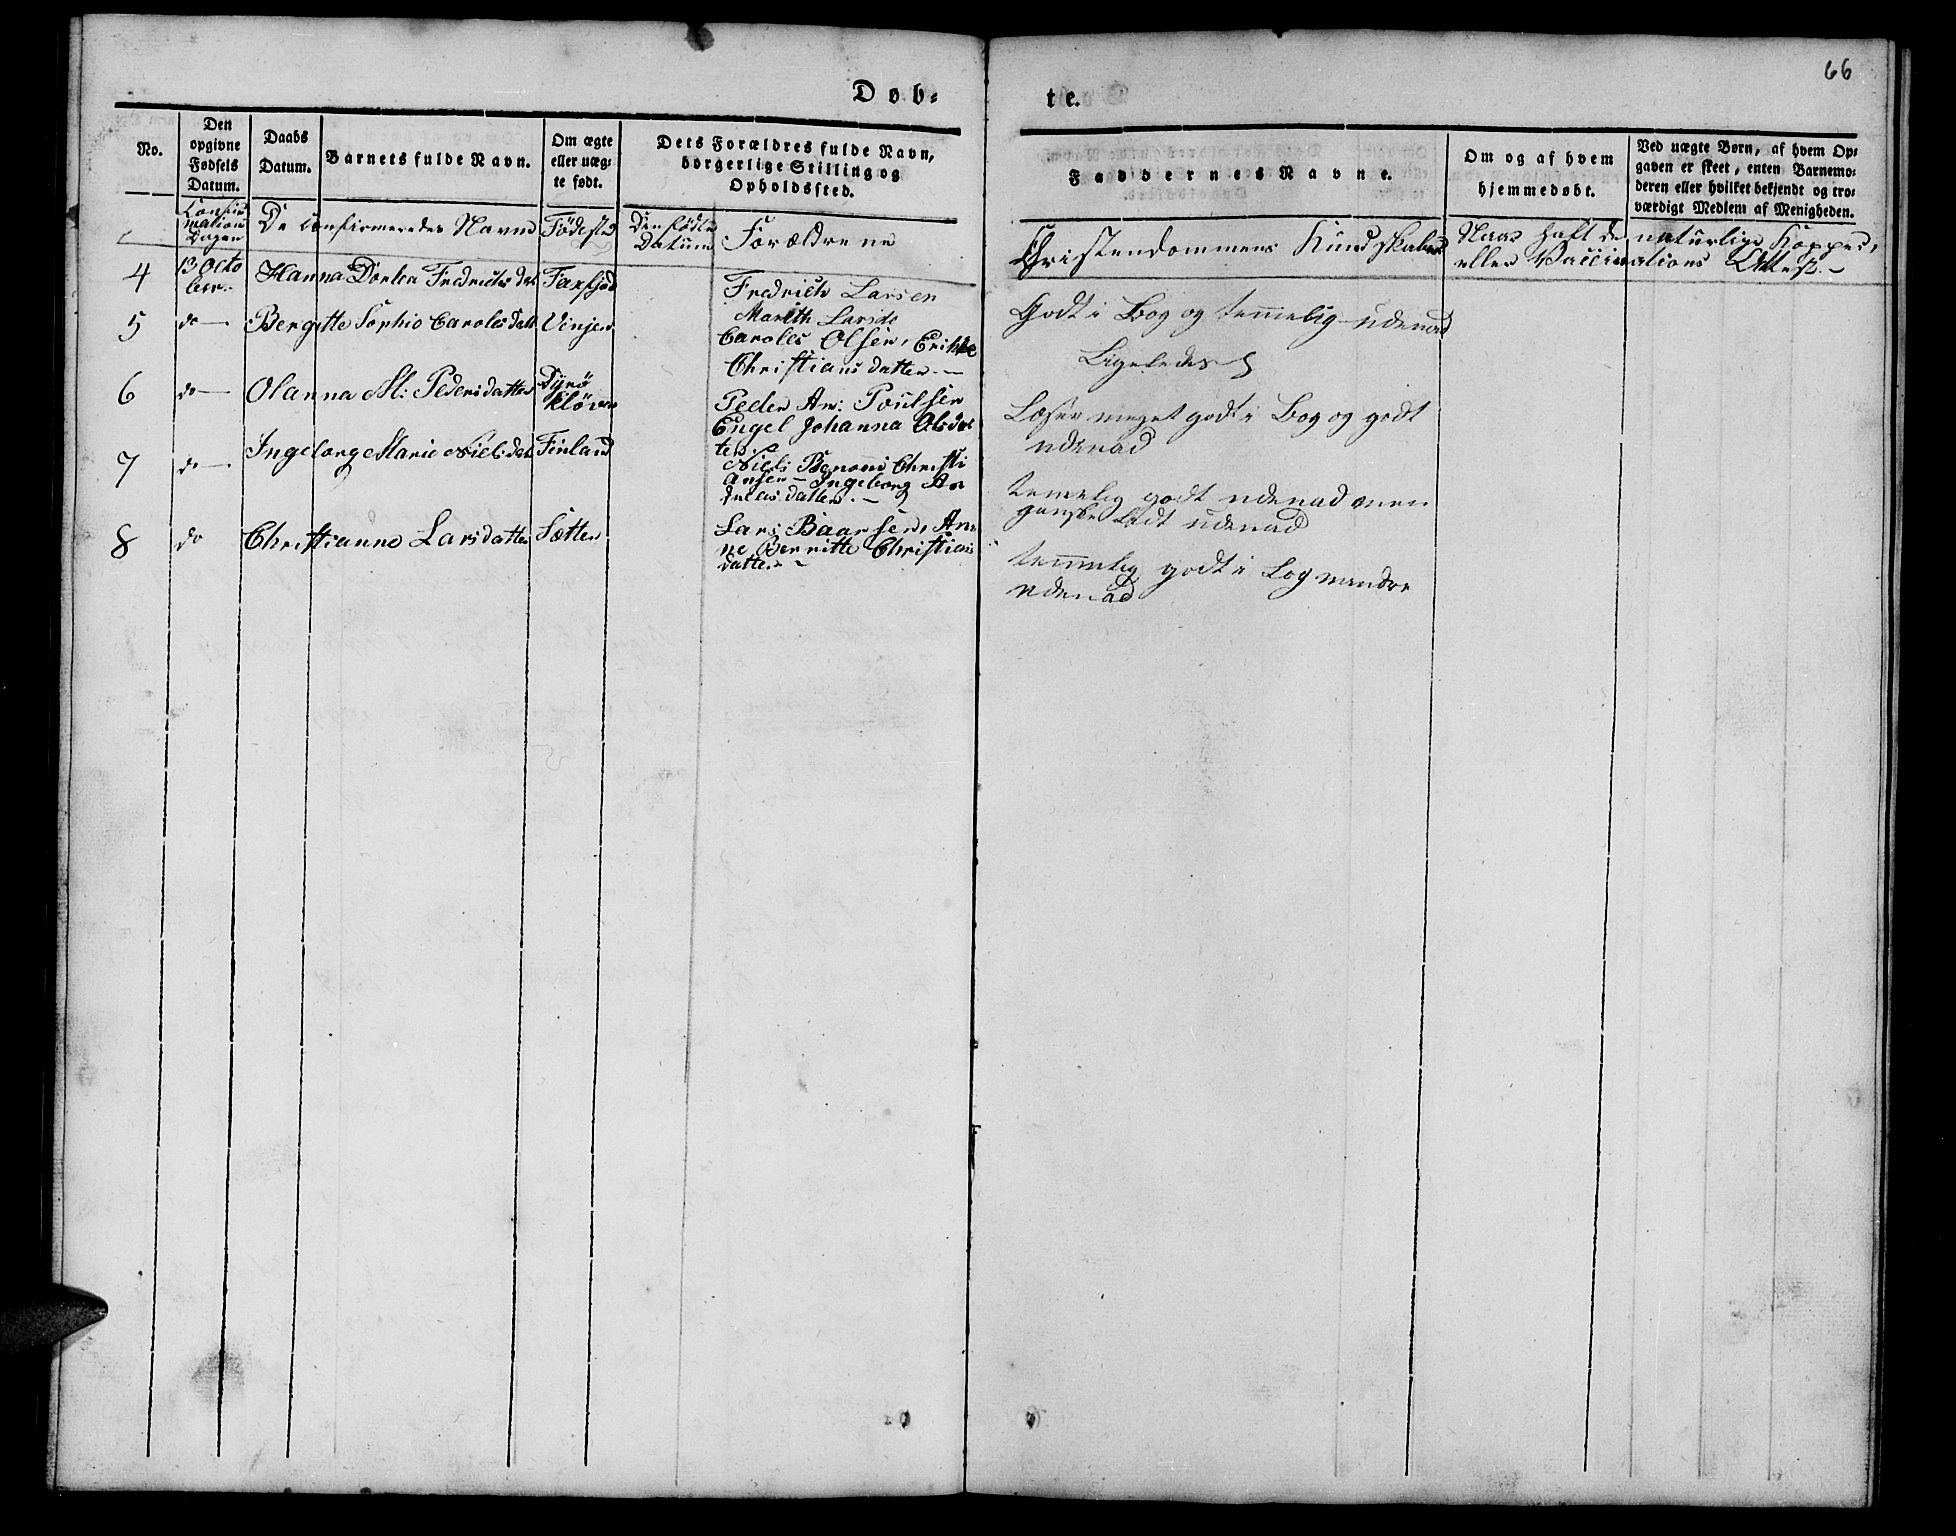 66
Døb-
te.
No.
Den
opgivne
Fødsels
Datum.
Daabs
Datum.
Barnets fulde Navn.
Om ægte
eller uæg-
te født.
Dets Forældres fulde Navn,
borgerlige Stilling og
Opholdssted.
Faddernes Navne.
Om og af hvem
hjemmedøbt.
Ved uægte Børn, af hvem Op-
gaven er skeet, enten Barnemo-
deren eller hvilket bekjendt og tro-
værdigt Medlem af Menigheden.
Confir
mations
Dagen
De Confirmeredes Navne
Födested
Den födte
Datum
Forældrene
Christendommens Kundskaber
Naar haft de naturlige Kopper,
eller Vaccinations Attest.-
4
13 Octo
ber.
Hanna Dortea Fredrichs dat
Faxfjord
Fredrich Larsen
Marith Larsd
Godt i Bog og temmelig udenad
5
do
Bergitte Sophie Caroles datt
Vinjen
Caroles Olsen, Erikke
Christians datter.
Ligeledes
6
do
Olanna M: Peders datter
Dyrö
Klöven
Peder An: Poulsen
Engel Johanna Olsdat
ter.
Læser meget godt i Bog og godt
udenad
7
do
Ingeborg Marie Niels dat
Finland
Niels Benoni Christi
ansen - Ingeborg An
dreas datter.
temelig godt udenad men
ganske lidt udenad
8
do
Christianne Lars datter
Sætter
Lars Baarsen, An
ne Berritte Christians
datter.
temmelig godt i Bog mindre
udenad